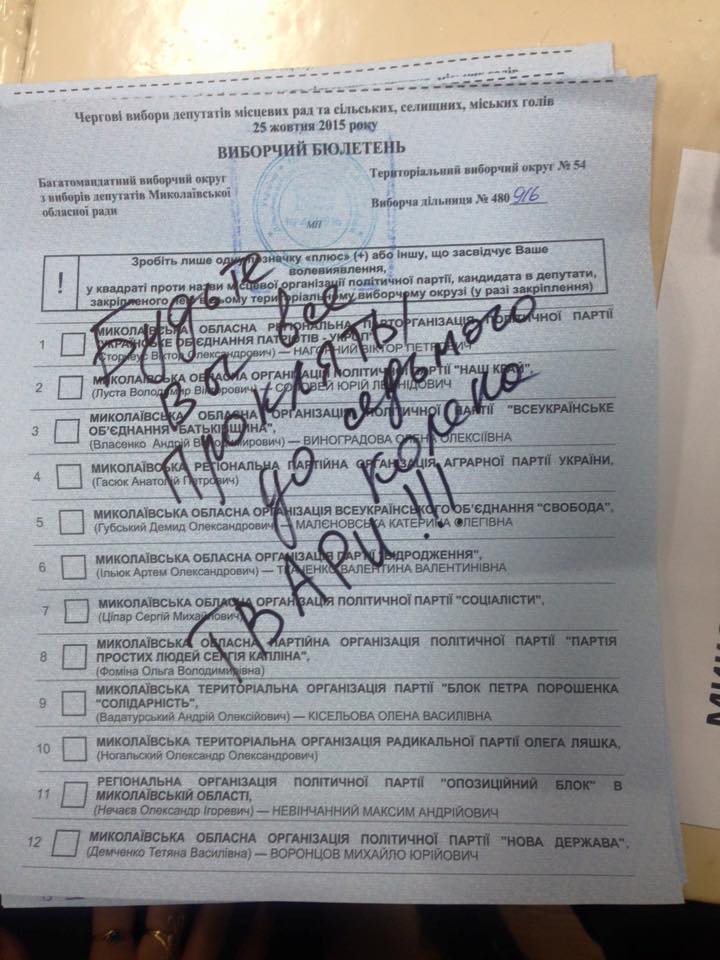 Чергові вибори депутатів місцевих рад та сільських, селищних, міських голів
25 жовтня 2015 року
ВИБОРЧИЙ БЮЛЕТЕНЬ
Багатомандатний виборчий округ
з виборів депутатів Миколаївської
обласної ради
Територіальний виборчий округ № 54
Виборча дільниця № 480916
МП
!
Зробіть лише одну позначку «плюс» (+) або іншу, що засвідчує Ваше
волевиявлення,
у квадраті проти назви місцевої організації політичної партії, кандидата в депутати,
закріпленого у територіальному виборчому окрузі (у разі закріплення)
Будьте
вы все
Прокляты
до седьмого
колена
ТВАРИ!!!
1 МИКОЛАЇВСЬКА ОБЛАСНА РЕГІОНАЛЬНА ПАРТОРГАНІЗАЦІЯ ПОЛІТИЧНОЇ ПАРТІЇ
УКРАЇНСЬКЕ ОБ'ЄДНАННЯ ПАТРІОТІВ - УКРОП
Віктор Олександрович) — ВІКТОР
2 МИКОЛАЇВСЬКА ОБЛАСНА ОРГАНІЗАЦІЯ ПОЛІТИЧНОЇ ПАРТІЇ "НАШ КРАЙ",
(Луста Володимир Вікторович) — СОЛОВЕЙ ЮРІЙ ЛЕОНІДОВИЧ
3 МИКОЛАЇВСЬКА ОБЛАСНА ОРГАНІЗАЦІЯ ПОЛІТИЧНОЇ ПАРТІЇ "ВСЕУКРАЇНСЬКЕ
ОБ'ЄДНАННЯ "БАТЬКІВЩИНА",
(Власенко Андрій Володимирович) — ВИНОГРАДОВА ОЛЕНА ОЛЕКСІЇВНА
4 МИКОЛАЇВСЬКА РЕГІОНАЛЬНА ПАРТІЙНА ОРГАНІЗАЦІЯ АГРАРНОЇ ПАРТІЇ УКРАЇНИ,
(Гасюк Анатолій Петрович)
5 МИКОЛАЇВСЬКА ОБЛАСНА ОРГАНІЗАЦІЯ ВСЕУКРАЇНСЬКОГО ОБ'ЄДНАННЯ "СВОБОДА",
(Губський Демид Олександрович) — МАЛЄНОВСЬКА КАТЕРИНА ОЛЕГІВНА
6 МИКОЛАЇВСЬКА ОБЛАСНА ОРГАНІЗАЦІЯ ПАРТІЇ "ВІДРОДЖЕННЯ",
(Ільюк Артем Олександрович) — ТКАЧЕНКО ВАЛЕНТИНА ВАЛЕНТИНІВНА
7 МИКОЛАЇВСЬКА ОБЛАСНА ОРГАНІЗАЦІЯ ПОЛІТИЧНОЇ ПАРТІЇ "СОЦІАЛІСТИ",
(Ціпар Сергій Михайлович)
8 МИКОЛАЇВСЬКА ОБЛАСНА ПАРТІЙНА ОРГАНІЗАЦІЯ ПОЛІТИЧНОЇ ПАРТІЇ "ПАРТІЯ
ПРОСТИХ ЛЮДЕЙ СЕРГІЯ КАПЛІНА",
(Фоміна Ольга Володимирівна)
9 МИКОЛАЇВСЬКА ТЕРИТОРІАЛЬНА ОРГАНІЗАЦІЯ ПАРТІЇ "БЛОК ПЕТРА ПОРОШЕНКА
"СОЛІДАРНІСТЬ",
(Вадатурський Андрій Олексійович) — КІСЕЛЬОВА ОЛЕНА ВАСИЛІВНА
10 МИКОЛАЇВСЬКА ТЕРИТОРІАЛЬНА ОРГАНІЗАЦІЯ РАДИКАЛЬНОЇ ПАРТІЇ ОЛЕГА ЛЯШКА,
(Ногальский Олександр Олександрович)
11 РЕГІОНАЛЬНА ОРГАНІЗАЦІЯ ПОЛІТИЧНОЇ ПАРТІЇ "ОПОЗИЦІЙНИЙ БЛОК" В
МИКОЛАЇВСЬКІЙ ОБЛАСТІ,
(Нечаєв Олександр Ігоревич) — НЕВІНЧАННИЙ МАКСИМ АНДРІЙОВИЧ
12 МИКОЛАЇВСЬКА ОБЛАСНА ОРГАНІЗАЦІЯ ПОЛІТИЧНОЇ ПАРТІЇ "НОВА ДЕРЖАВА",
(Демченко Тетяна Василівна) — ВОРОНЦОВ МИХАЙЛО ЮРІЙОВИЧ